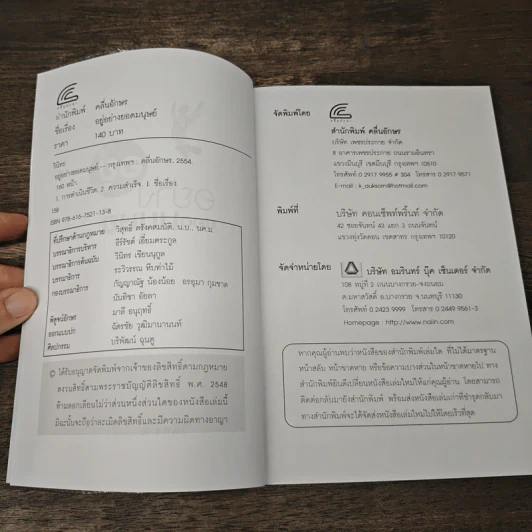 สำนักพิมพ์ คลื่นอักษร
ชื่อเรื่อง อยู่อย่างยอดมนุษย์
ราคา 140 บาท
วินิทร
อยู่อย่างยอดมนุษย์.-- กรุงเทพฯ : คลื่นอักษร, 2554.
160 หน้า.
1. การดำเนินชีวิต. 2. ความสำเร็จ. I. ชื่อเรื่อง.
158
ISBN 978-616-7521-13-8
ที่ปรึกษาด้านกฎหมาย วิสุทธิ์ ตรังคสมบัติ, น.บ., นค.ม.
บรรณาธิการบริหาร ธีร์รัชต์ เอี่ยมตระกูล
บรรณาธิการต้นฉบับ วินิทร เซียนนุกูล
บรรณาธิการ ระวิวรรณ ทิบทำไม้
กองบรรณาธิการ กัญญาณัฐ น้องน้อย อรอุมา กุมขาด
นันทิชา อัยลา
พิสูจน์อักษร มาลี อนุฤทธิ์
ออกแบบปก ฉัตรชัย วุฒิมานานนท์
ศิลปกรรม บริพัฒน์ ฉุนดู
© ได้รับอนุญาตจัดพิมพ์จากเจ้าของลิขสิทธิ์ตามกฎหมาย
สงวนสิทธิ์ตามพระราชบัญญัติลิขสิทธิ์ พ.ศ. 2548
ห้ามลอกเลียนไม่ว่าส่วนหนึ่งส่วนใดของหนังสือเล่มนี้
มิฉะนั้นจะถือว่าละเมิดลิขสิทธิ์และมีความผิดทางอาญา
จัดพิมพ์โดย
สำนักพิมพ์ คลื่นอักษร
บริษัท เพชรประกาย จำกัด
8 อาคารเพชรประกาย ถนนรามอินทรา
แขวงมีนบุรี เขตมีนบุรี กรุงเทพฯ 10510
โทรศัพท์ 0 2917 9955 # 304 โทรสาร 0 2917 9571
E-mail : k_auksorn@hotmail.com
พิมพ์ที่ บริษัท คอนเซ็พท์พริ้นท์ จำกัด
42 ซอยจันทน์ 43 แยก 3 ถนนจันทน์
แขวงทุ่งวัดดอน เขตสาทร กรุงเทพฯ 10120
จัดจำหน่ายโดย บริษัท อมรินทร์ บุ๊ค เซ็นเตอร์ จำกัด
108 หมู่ 2 ถนนบางกรวย-จงถนอม
ต.มหาสวัสดิ์ อ.บางกรวย จ.นนทบุรี 11130
โทรศัพท์ 0 2423 9999 โทรสาร 0 2449 9561-3
Homepage : http://www.naiin.com
หากคุณผู้อ่านพบว่าหนังสือของสำนักพิมพ์เล่มใด ที่ไม่ได้มาตรฐาน
หน้าสลับ หน้าขาดหาย หรือข้อความบางส่วนในหน้าขาดหายไป ทาง
สำนักพิมพ์ยินดีเปลี่ยนหนังสือเล่มใหม่ให้แก่คุณผู้อ่าน โดยสามารถ
ติดต่อกลับมายังสำนักพิมพ์ พร้อมส่งหนังสือเล่มเก่าที่ชำรุดกลับมา
ทางสำนักพิมพ์จะได้จัดส่งหนังสือเล่มใหม่ไปให้โดยเร็วที่สุด